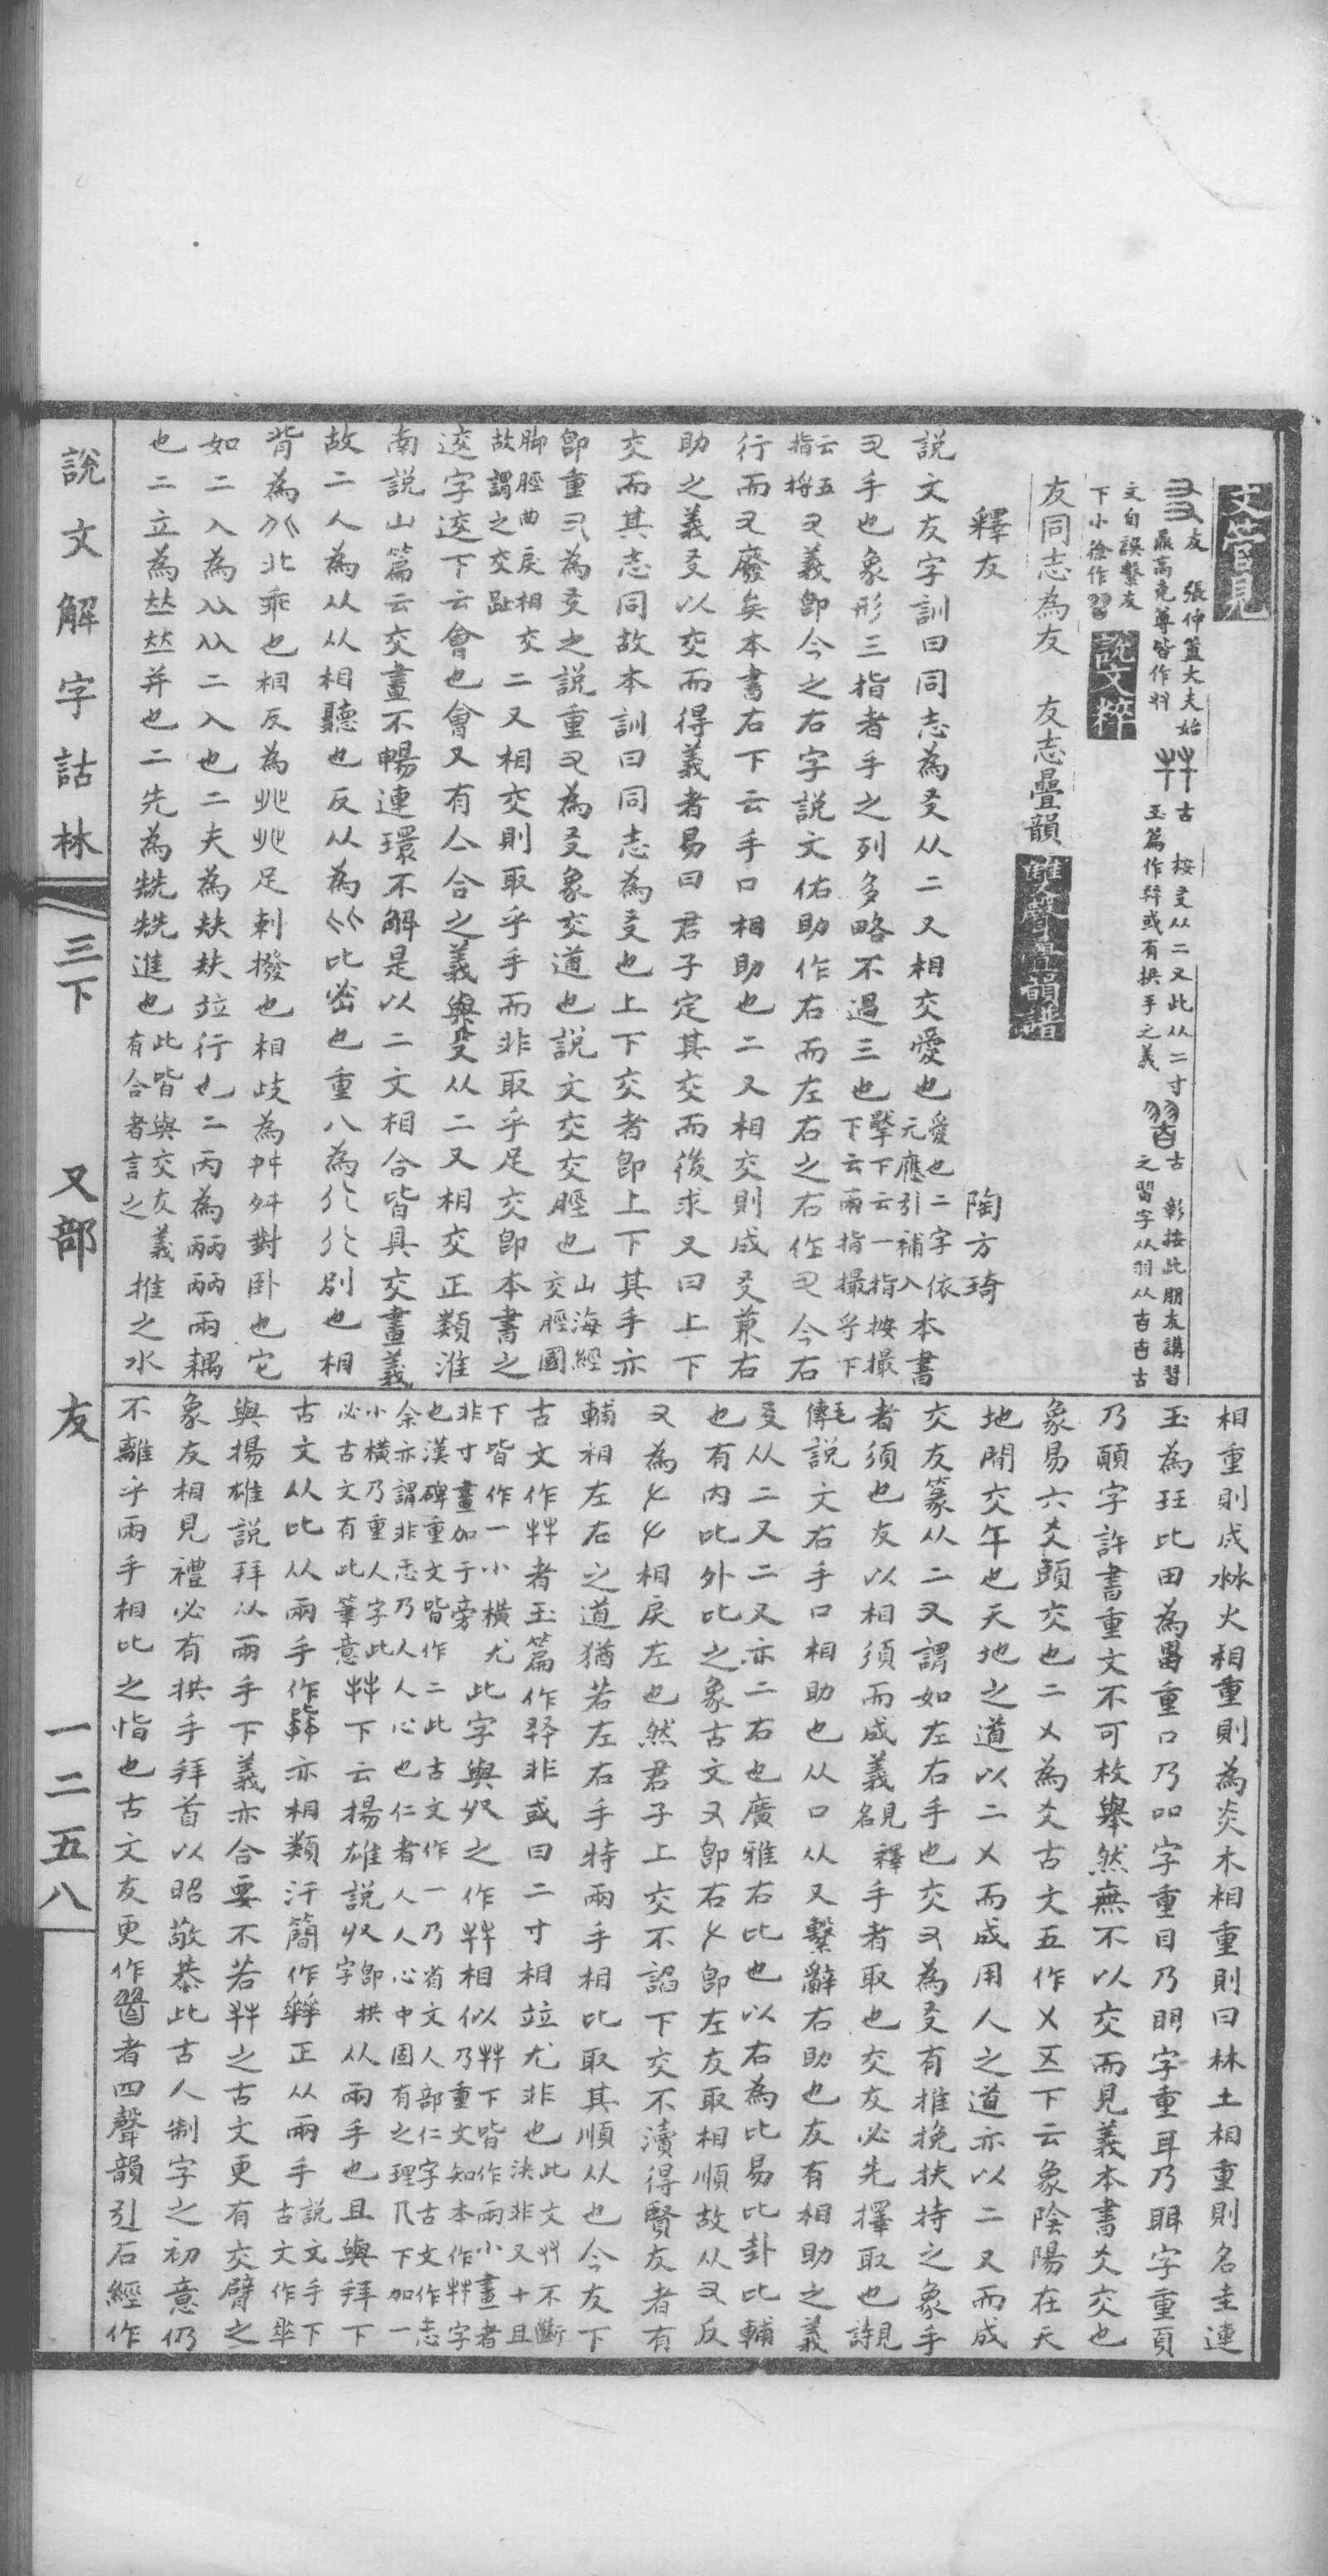 文管見
友 張仲簠大夫始鼎高克尊皆作 古 按㕛从二又此从二寸玉篇作𦐮或有拱手之義 古 彰按此朋友講習之習字从羽从𦣻𦣻古
文自誤繫友下小徐作 說文粹
友同志為友 友志疊韻 雙聲疊韻譜
釋友 陶方琦
說文友字訓曰同志為㕛从二又相交愛也愛也二字依元應引補入本書
又手也象形三指者手之列多略不過三也擊下云一指按撮下云兩指撮乎下
云五指捋又義卽今之右字說文佑助作右而左右之右作又今右
行而又廢矣本書右下云手口相助也二又相交則成㕛兼右
助之義㕛以交而得義者易曰君子定其交而後求又曰上下
交而其志同故本訓曰同志為㕛也上下交者卽上下其手亦
卽重又為㕛之說重又為㕛象交道也說文交交脛也山海經交脛國
脚脛曲戾相交故謂之交趾二又相交則取乎手而非取乎足交卽本書之
逰字逰下云會也會又有亼合之義與㕛从二又相交正類淮
南說山篇云交畫不暢連環不解是以二文相合皆具交畫義
故二人為从从相聽也反从為比比密也重八為𠔁𠔁別也相
背為北北乖也相反為癶癶足剌撥也相歧為舛舛對臥也它
如二入為㒰㒰二入也二夫為㚘㚘竝行也二丙為㔷㔷兩耦
也二立為竝竝并也二先為兟兟進也此皆與交友義有合者言之推之水
相重則成沝火相重則為炎木相重則曰林土相重則名圭連
玉為玨比田為畕重口乃吅字重目乃䀠字重耳乃聑字重頁
乃𩠐字許書重文不可枚舉然無不以交而見義本書爻交也
象易六爻頭交也二乂為爻古文五作乂五下云象陰陽在天
地閒交午也天地之道以二乂而成用人之道亦以二又而成
交友篆从二又謂如左右手也交又為㕛有推挽扶持之象手
者須也友以相須而成義見釋名手者取也交友必先擇取也見詩
毛傳說文右手口相助也从口从又繫辭右助也友有相助之義
㕛从二又二又亦二右也廣雅右比也以右為比易比卦比輔
也有內比外比之象古文又卽右𠂇卽左友取相順故从又反
又為𠂇𠂇相戾左也然君子上交不諂下交不瀆得賢友者有
輔相左右之道猶若左右手特兩手相比取其順从也今友下
古文作𦫳者玉篇作𦐮非或曰二寸相竝尤非也此文艸不斷決非又十且
下皆作一小橫尤非寸畫加于旁此字與𠬞之作𦫳相似𦫳下皆作兩小畫者乃重文知本作𦫳字
也漢碑重文皆作二此古文作一乃省文人部仁字古文作忎余亦謂非忎乃人人心也仁者人人心中固有之理𠘧下加一
小橫乃重人字此必古文有此筆意𦫳下云揚雄說𠬞字卽拱从兩手也且與拜下
古文从比从兩手作亦相類汗簡作正从兩手說文手下古文作𠦒
與揚雄說拜从兩手下義亦合要不若𦫳之古文更有交臂之
象友相見禮必有拱手拜首以昭敬恭此古人制字之初意仍
不離乎兩手相比之恉也古文友更作者四聲韻引石經作
說文解字詁林 三下 又部 友 一二五八